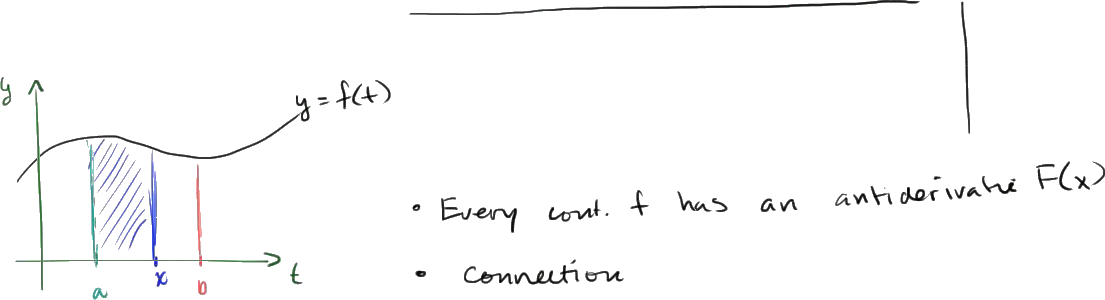 y
y = f(t)
a
x
b
t
• Every cont. f has an antiderivative F(x)
• Connection